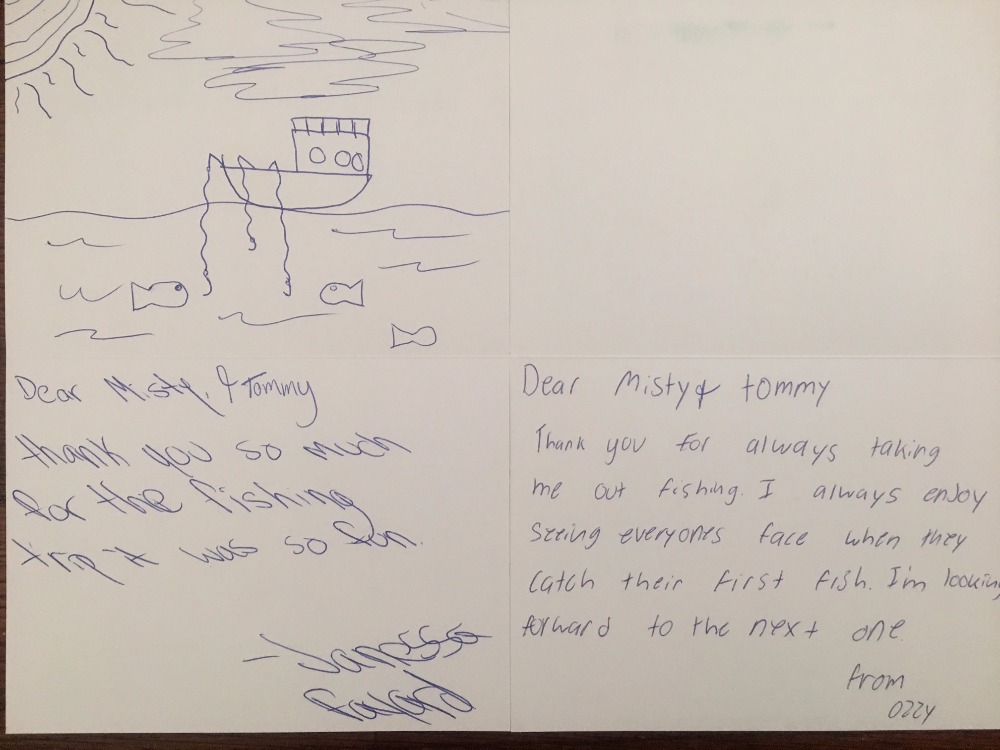 Dear Misty, & Tommy
thank you so much
for the fishing
trip it was so fun.
- Janessa
Dear Misty & tommy
Thank you for always taking
me out fishing. I always enjoy
seeing everyones face when they
catch their first fish. I'm looking
forward to the next one.
from
Ozzy